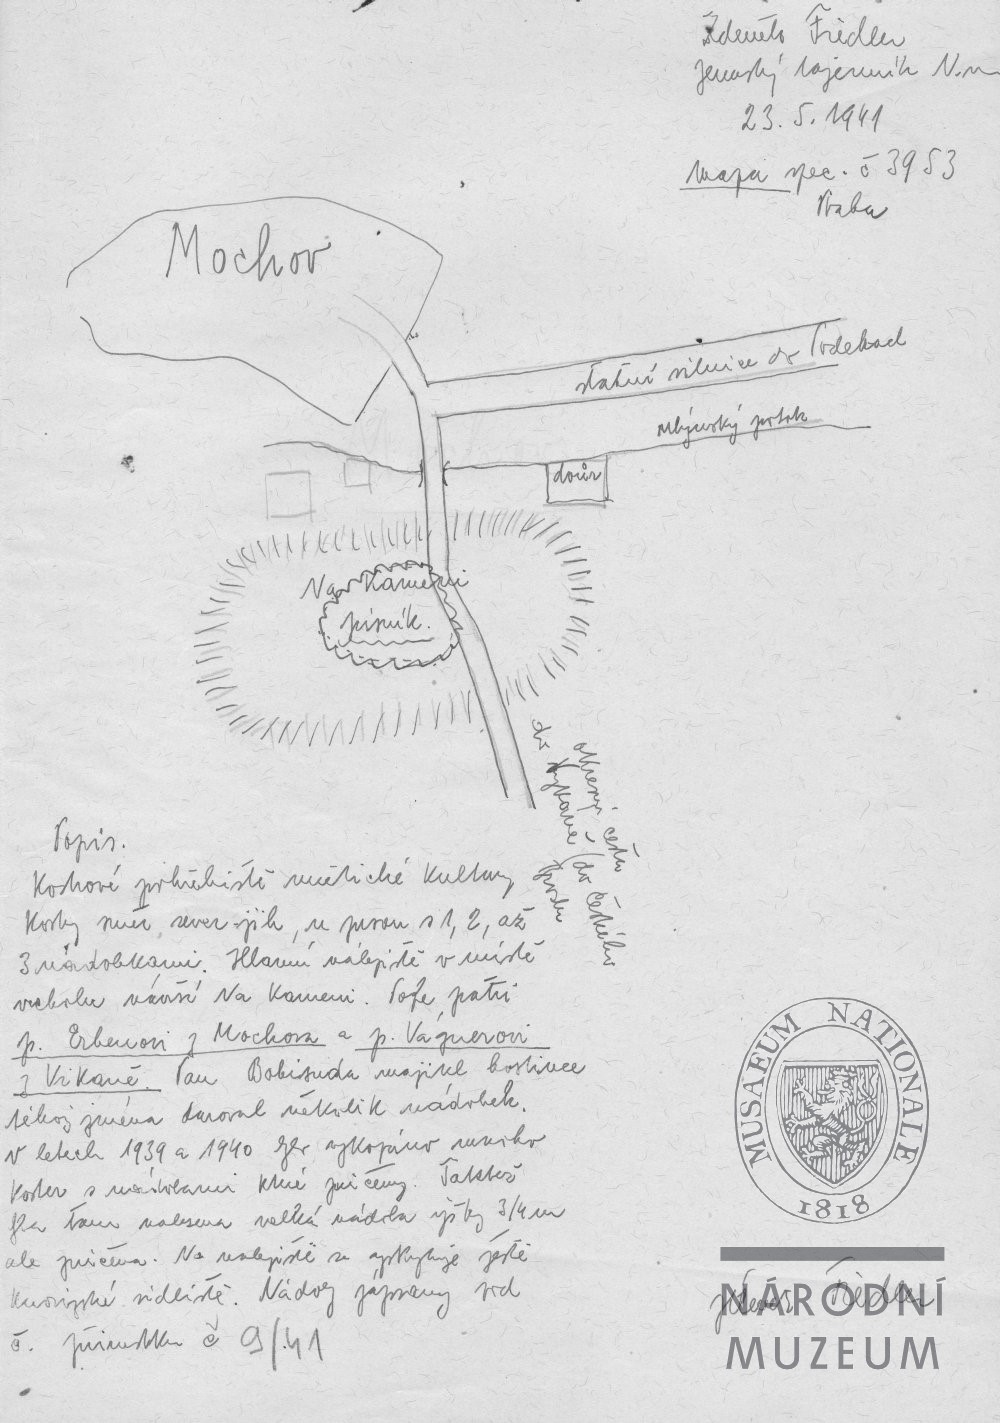 Zdeněk Fiedler
zemský tajemník N.m
23. 5. 1941
mapa spec. č 3953
Praha
Mochov
státní silnice do Poděbrad
mlýnský potok
dvůr
Na Kameni
písník.
okresní cesta
do Vykáně (do Českého
Brodu
Popis.
Kostrové pohřebiště únětické kultury
Kostry směr sever-jih, u pasu s 1, 2, až
3 nádobkami. Hlavní nálepiště v místě
vrcholu návrší Na Kameni. Pole patří
p. Erbenovi z Mochova a p. Vágnerovi
z Vikaně. Pan Bobisuda majitel hostince
téhož jména daroval několik nádobek.
V letech 1939 a 1940 bylo vykopáno mnoho
koster s nádobami které zničeny. Taktéž
byla tam nalezena velká nádoba výšky 3/4 m
ale zničena. Na nalezišti se vyskytuje ještě
knovízské sídliště. Nádoby zapsány pod
č. přírustku č 9/41
Zdeněk Fiedler
MUSAEUM NATIONALE
1818
NÁRODNÍ
MUZEUM